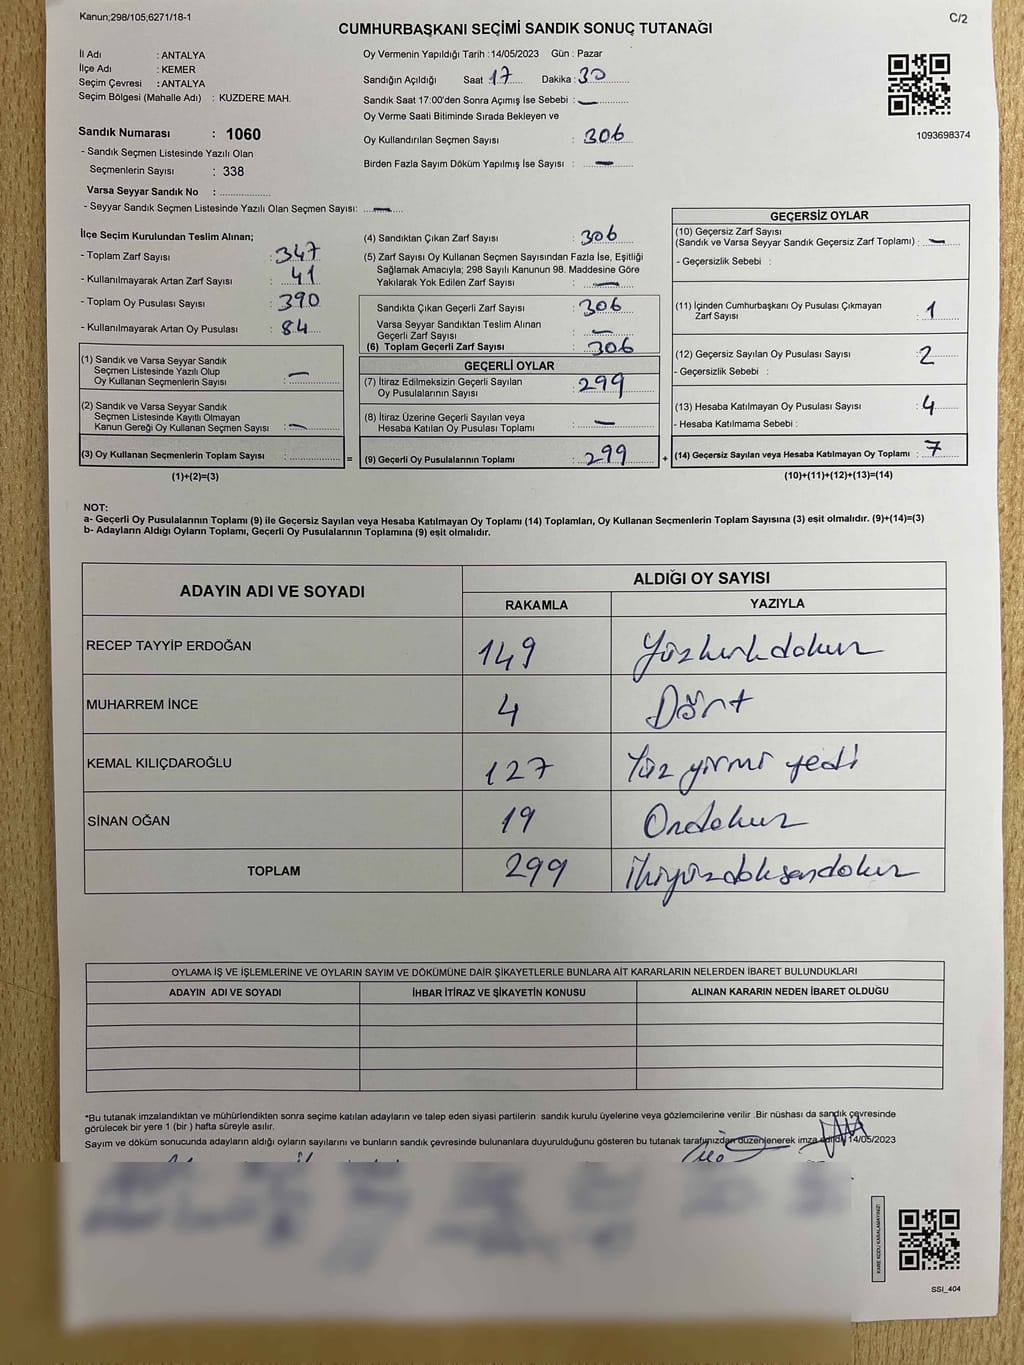 Kanun;298/105;6271/18-1
C/2
CUMHURBAŞKANI SEÇİMİ SANDIK SONUÇ TUTANAĞI
İl Adı : ANTALYA
İlçe Adı : KEMER
Seçim Çevresi : ANTALYA
Seçim Bölgesi (Mahalle Adı) : KUZDERE MAH.
Sandık Numarası : 1060
- Sandık Seçmen Listesinde Yazılı Olan
Seçmenlerin Sayısı : 338
Varsa Seyyar Sandık No : ..................
- Seyyar Sandık Seçmen Listesinde Yazılı Olan Seçmen Sayısı: —
Oy Vermenin Yapıldığı Tarih :14/05/2023 Gün : Pazar
Sandığın Açıldığı Saat 17 Dakika : 30
Sandık Saat 17:00'den Sonra Açımış İse Sebebi : —
Oy Verme Saati Bitiminde Sırada Bekleyen ve
Oy Kullandırılan Seçmen Sayısı : 306
Birden Fazla Sayım Döküm Yapılmış İse Sayısı : —
1093698374
İlçe Seçim Kurulundan Teslim Alınan;
- Toplam Zarf Sayısı : 347
- Kullanılmayarak Artan Zarf Sayısı : 41
- Toplam Oy Pusulası Sayısı : 390
- Kullanılmayarak Artan Oy Pusulası : 84
(1) Sandık ve Varsa Seyyar Sandık
Seçmen Listesinde Yazılı Olup
Oy Kullanan Seçmenlerin Sayısı : —
(2) Sandık ve Varsa Seyyar Sandık
Seçmen Listesinde Kayıtlı Olmayan
Kanun Gereği Oy Kullanan Seçmen Sayısı : —
(3) Oy Kullanan Seçmenlerin Toplam Sayısı : ............... =
(1)+(2)=(3)
(4) Sandıktan Çıkan Zarf Sayısı : 306
(5) Zarf Sayısı Oy Kullanan Seçmen Sayısından Fazla İse, Eşitliği
Sağlamak Amacıyla; 298 Sayılı Kanunun 98. Maddesine Göre
Yakılarak Yok Edilen Zarf Sayısı : —
Sandıkta Çıkan Geçerli Zarf Sayısı : 306
Varsa Seyyar Sandıktan Teslim Alınan
Geçerli Zarf Sayısı : —
(6) Toplam Geçerli Zarf Sayısı : 306
GEÇERLİ OYLAR
(7) İtiraz Edilmeksizin Geçerli Sayılan
Oy Pusulalarının Sayısı : 299
(8) İtiraz Üzerine Geçerli Sayılan veya
Hesaba Katılan Oy Pusulası Toplamı : —
(9) Geçerli Oy Pusulalarının Toplamı : 299 +
GEÇERSİZ OYLAR
(10) Geçersiz Zarf Sayısı
(Sandık ve Varsa Seyyar Sandık Geçersiz Zarf Toplamı) : —
- Geçersizlik Sebebi :
(11) İçinden Cumhurbaşkanı Oy Pusulası Çıkmayan
Zarf Sayısı : 1
(12) Geçersiz Sayılan Oy Pusulası Sayısı : 2
- Geçersizlik Sebebi :
(13) Hesaba Katılmayan Oy Pusulası Sayısı : 4
- Hesaba Katılmama Sebebi :
(14) Geçersiz Sayılan veya Hesaba Katılmayan Oy Toplamı : 7
(10)+(11)+(12)+(13)=(14)
NOT:
a- Geçerli Oy Pusulalarının Toplamı (9) ile Geçersiz Sayılan veya Hesaba Katılmayan Oy Toplamı (14) Toplamları, Oy Kullanan Seçmenlerin Toplam Sayısına (3) eşit olmalıdır. (9)+(14)=(3)
b- Adayların Aldığı Oyların Toplamı, Geçerli Oy Pusulalarının Toplamına (9) eşit olmalıdır.
ADAYIN ADI VE SOYADI
ALDIĞI OY SAYISI
RAKAMLA YAZIYLA
RECEP TAYYİP ERDOĞAN 149 Yüzkırkdokuz
MUHARREM İNCE 4 Dört
KEMAL KILIÇDAROĞLU 127 Yüz yirmi yedi
SİNAN OĞAN 19 Ondokuz
TOPLAM 299 ikiyüzdoksandokuz
OYLAMA İŞ VE İŞLEMLERİNE VE OYLARIN SAYIM VE DÖKÜMÜNE DAİR ŞİKAYETLERLE BUNLARA AİT KARARLARIN NELERDEN İBARET BULUNDUKLARI
ADAYIN ADI VE SOYADI İHBAR İTİRAZ VE ŞİKAYETİN KONUSU ALINAN KARARIN NEDEN İBARET OLDUĞU
*Bu tutanak imzalandıktan ve mühürlendikten sonra seçime katılan adayların ve talep eden siyasi partilerin sandık kurulu üyelerine veya gözlemcilerine verilir .Bir nüshası da sandık çevresinde
görülecek bir yere 1 (bir ) hafta süreyle asılır.
Sayım ve döküm sonucunda adayların aldığı oyların sayılarını ve bunların sandık çevresinde bulunanlara duyurulduğunu gösteren bu tutanak tarafımızdan düzenlenerek imza edildi. 14/05/2023
KARE KODU KARALAMAYINIZ!
SSI_404